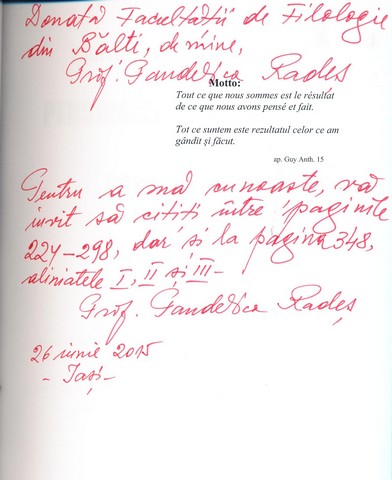 Donată Facultății de Filologie
din Bălți, de mine,
Prof. Gandelica Radeș
Motto:
Tout ce que nous sommes est le résultat
de ce que nous avons pensé et fait.
Tot ce suntem este rezultatul celor ce am
gândit și făcut.
ap. Guy Anth. 15
Pentru a mă cunoaște, vă
invit să citiți între paginile
224-298, dar și la pagina 348,
aliniatele I, II și III-
Prof. Gandelica Radeș
26 iunie 2015
- Iași -